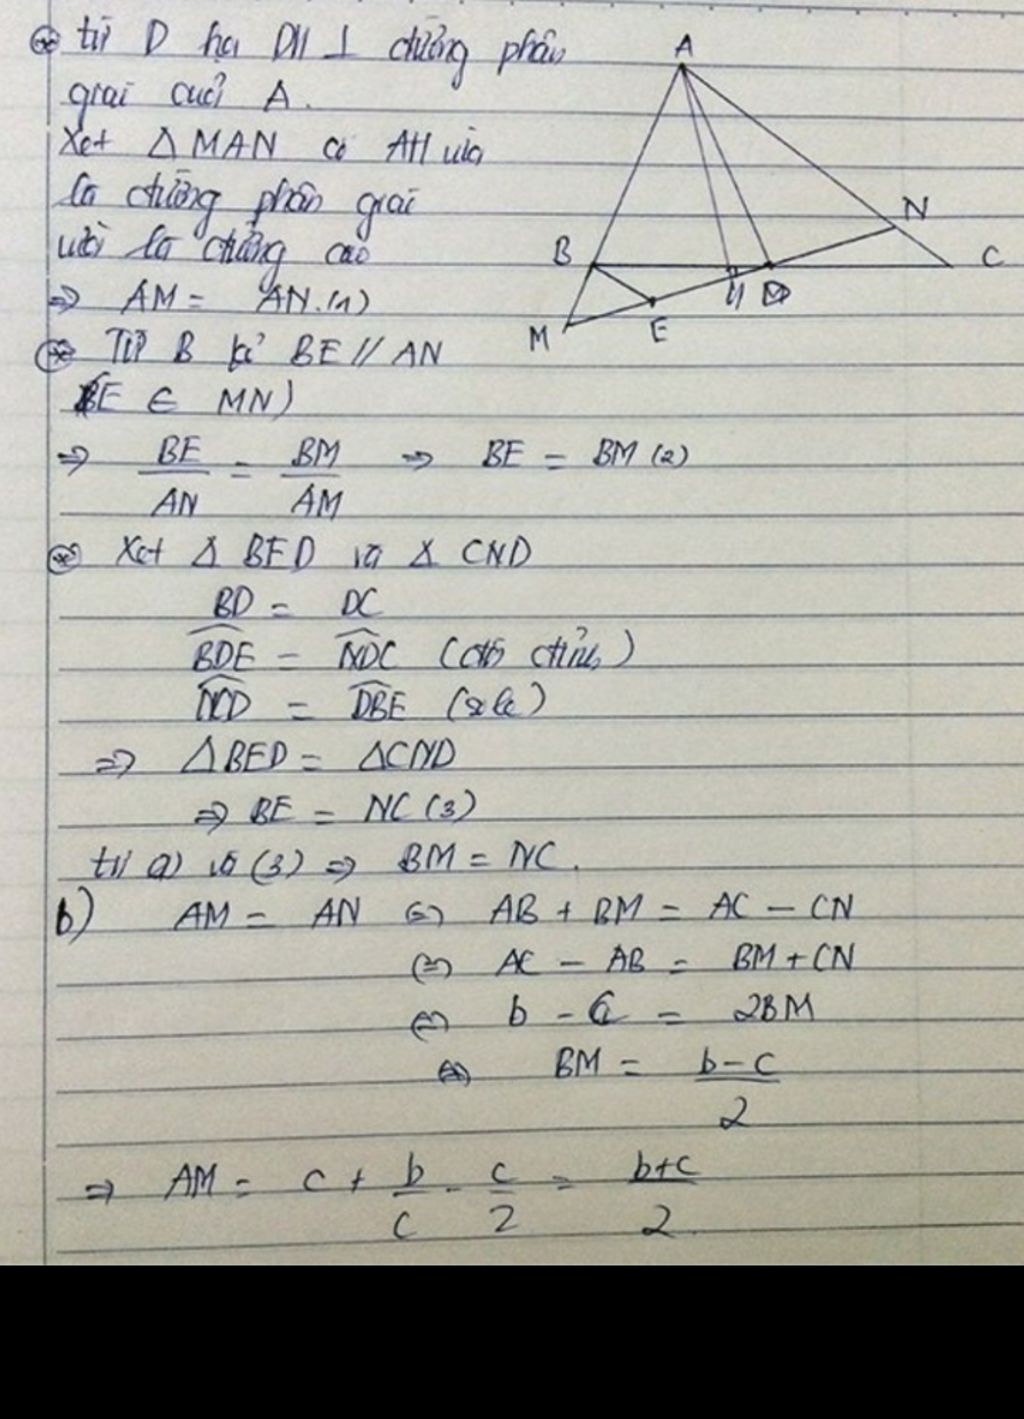 ⊛ từ D hạ DH ⊥ đường phân
giác cuả A.
Xét Δ MAN có AH vừa
là đường phân giác
vừa là đường cao
⇒ AM = AN.(1)
⊛ Từ B kẻ BE // AN
(E ∈ MN)
⇒ BE/AN = BM/AM ⇒ BE = BM (2)
⊛ Xét Δ BED và Δ CND
BD = DC
BDE = NDC (đối đỉnh)
NCD = DBE (sole)
⇒ ΔBED = ΔCND
⇒ BE = NC (3)
từ (2) và (3) ⇒ BM = NC.
b) AM = AN ⇔ AB + BM = AC - CN
⇔ AC - AB = BM + CN
⇔ b - c = 2BM
⇔ BM = b-c/2
⇒ AM = c + b/c - c/2 = b+c/2
A
N
B
C
H
D
M
E